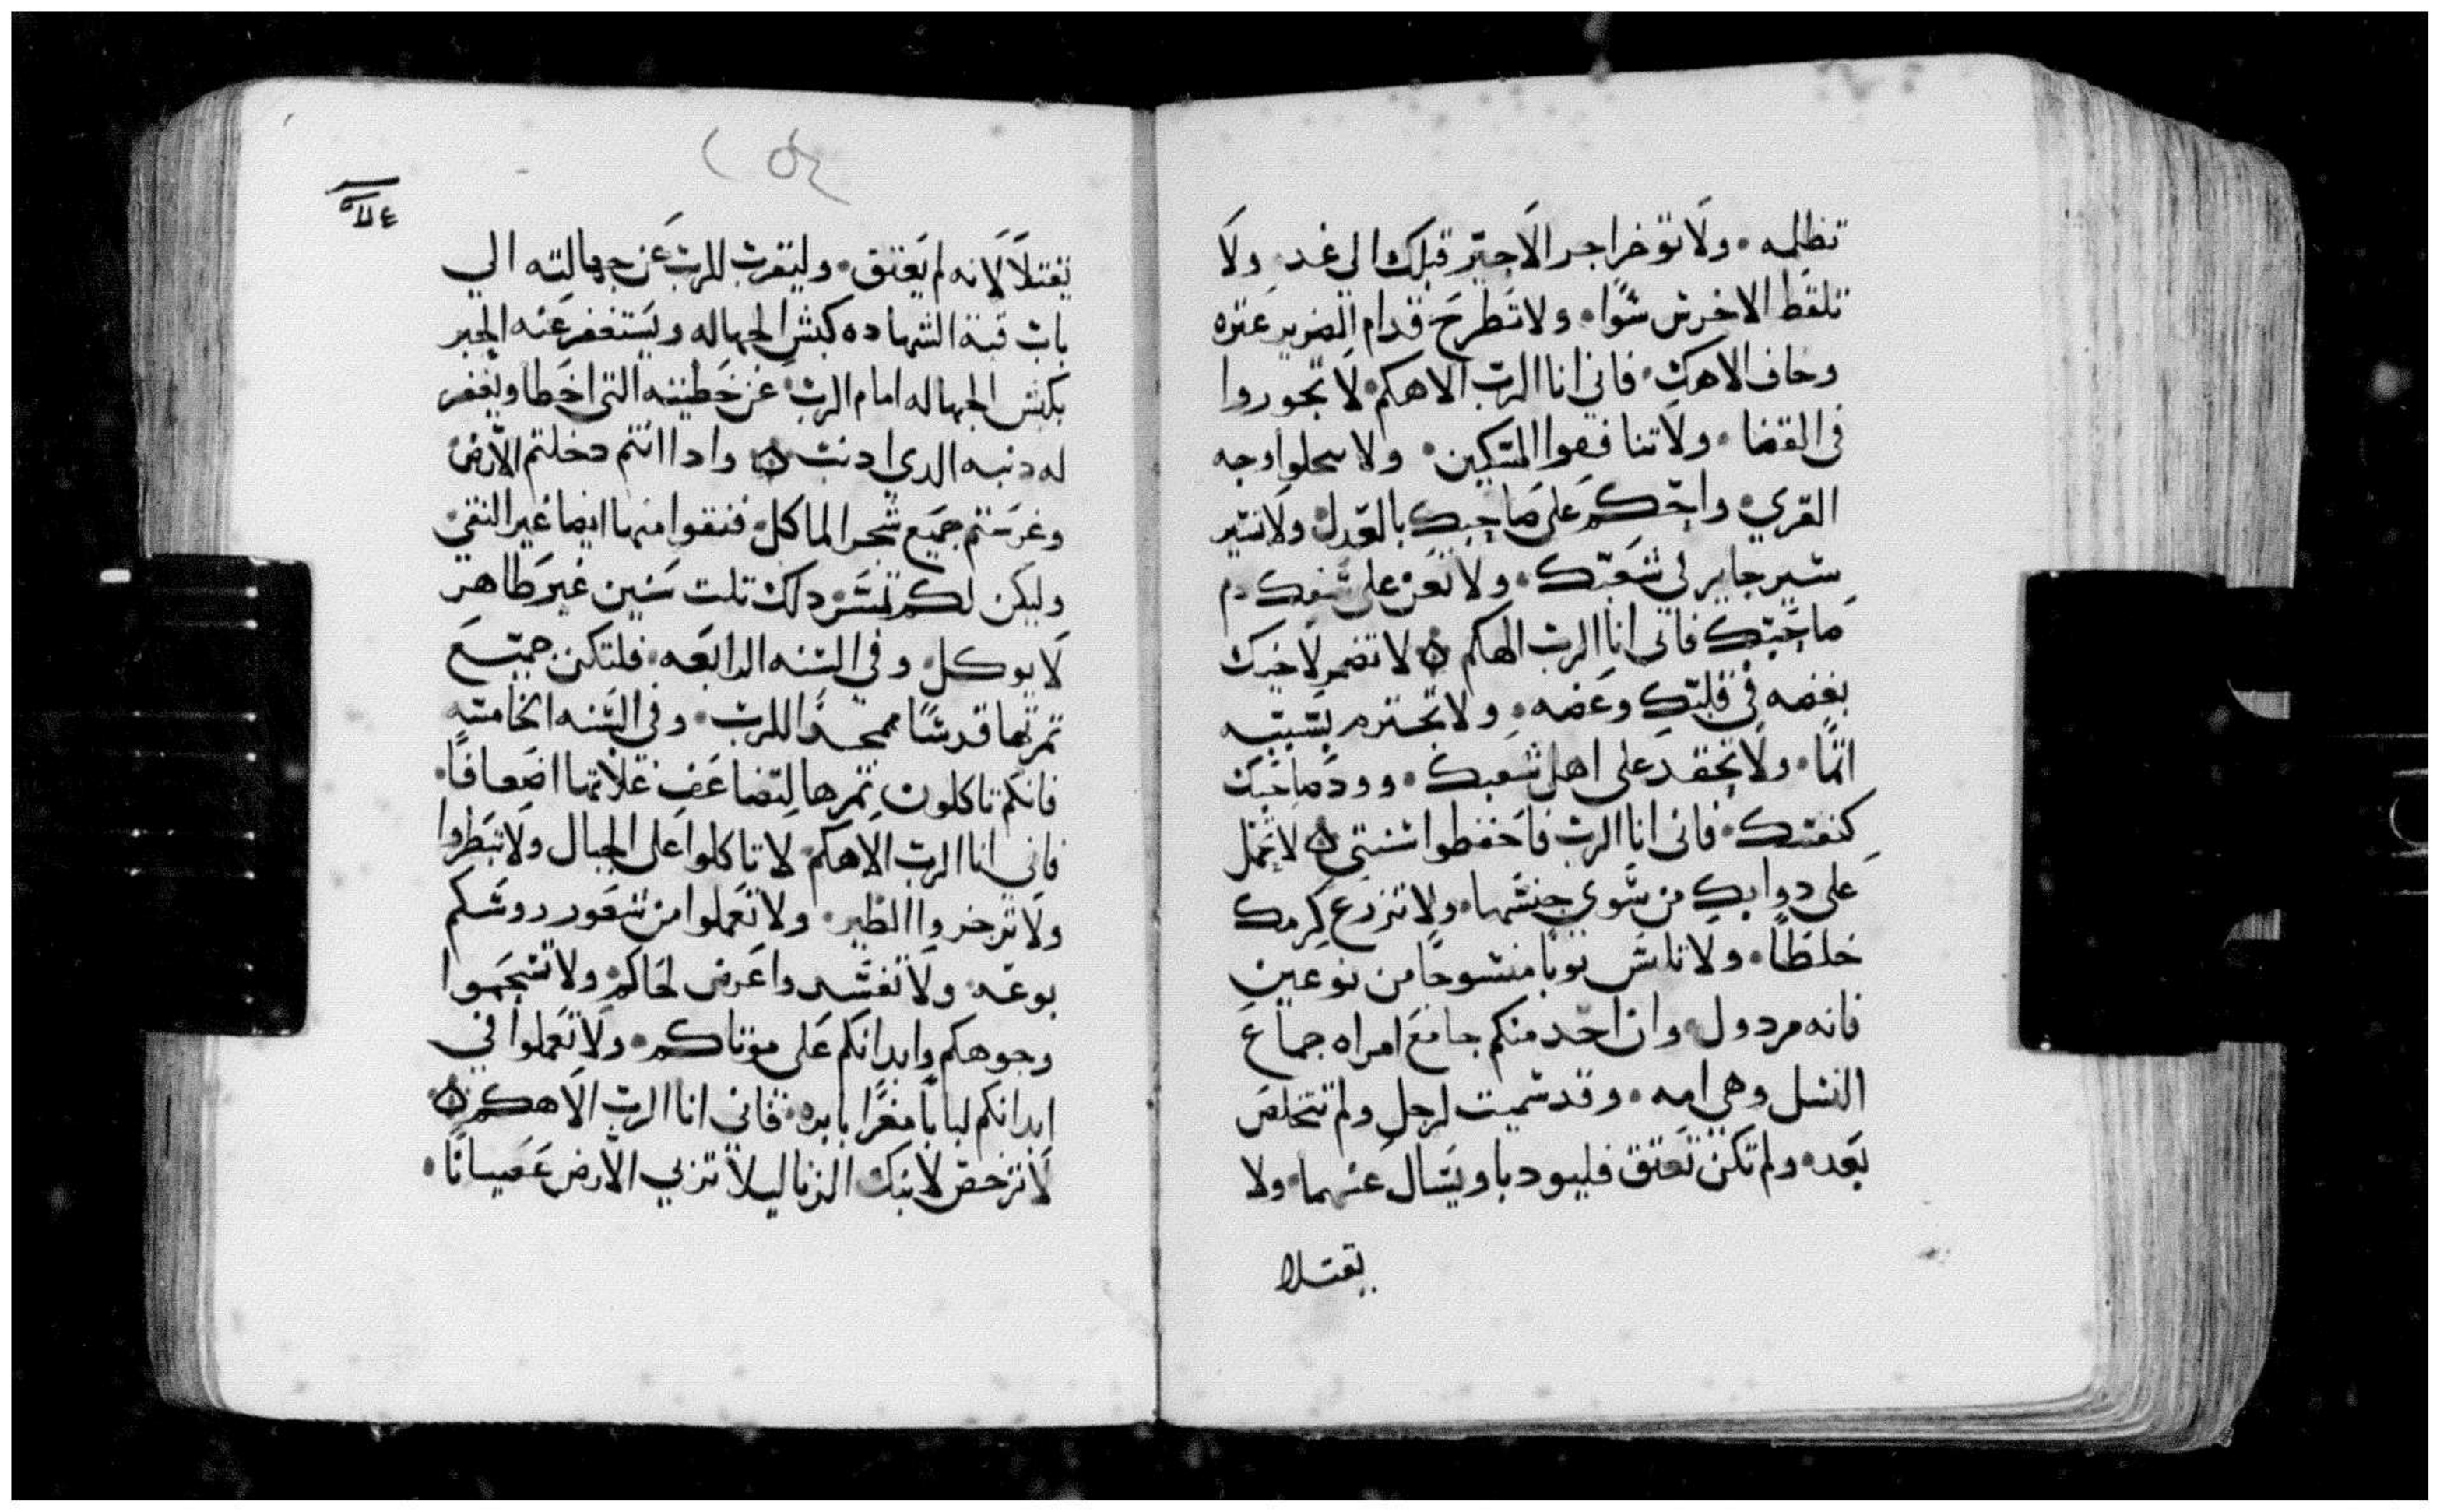 تظلمه ۰ ولا توخر اجر الاجير قبلك الي غد ۰ ولا
تلفظ الاخرس سوا ۰ ولا تطرح قدام الضرير عتره
وخاف الاهك ۰ فاني انا الرب الاهكم ۰ لا تجوروا
في القضا ۰ ولا تنافقوا المسكين ۰ ولا تبجلوا وجه
القري ۰ واحكم علي صاحبك بالعدل ۰ ولا تسير
سير جاير في شعبك ۰ ولا تعن علي سفك دم
صاحبك فاني انا الرب الهكم ۰ لا تضمر لاخيك
بغضه في قلبك وعضه ۰ ولا تجترم بسببه
اثما ۰ ولا تحقد علي اهل شعبك ۰ وود صاحبك
كنفسك ۰ فاني انا الرب فاحفظوا سنتي ۰ لا تحمل
علي دوابك من سوي جنسها ۰ ولا تزرع كرمك
خلطا ۰ ولا تلبس توبا منسوجا من نوعين
فانه مردول ۰ وان احد منكم جامع امراه جماع
النسل وهي امه ۰ وقد سميت لرجل ولم تتخلص
بعد ۰ ولم تكن تعتق فليودبا ويسال عنهما ۰ ولا
يقتلا
يقتلا لانه لم يعتق ۰ وليقرب للرب عن جهالته الي
باب قبة الشهاده كبش الجهاله ويستغفر عنه الحبر
بكبش الجهاله امام الرب ۰ عن خطيته التي اخطا ويغفر
له دنبه الدي ادنب ۰ وادا انتم دخلتم الارض
وغرستم جميع شجر الماكل ۰ فنقوا منها ايضا غير النقي ۰
وليكن لكم تمر دلك تلت سنين غير طاهر
لا يوكل ۰ وفي السنه الرابعه ۰ فلتكن جميع
تمرتها قدسا ممجدا للرب ۰ وفي السنه الخامسه
فانكم تاكلون تمرها لتضاعف غلاتها اضعافا ۰
فاني انا الرب الاهكم ۰ لا تاكلوا علي الجبال ولا تتطروا
ولا تزجروا الطير ۰ ولا تعملوا من شعور روسكم
بوعه ۰ ولا تفسدوا عرض لحاكم ۰ ولا تشجموا
وجوهكم وابدانكم علي موتاكم ۰ ولا تعملوا في
ابدانكم كتابا مغرا بابره ۰ فاني انا الرب الاهكم ۰
لا ترخص لابنتك الزنا ليلا تزني الارض عصيانا ۰